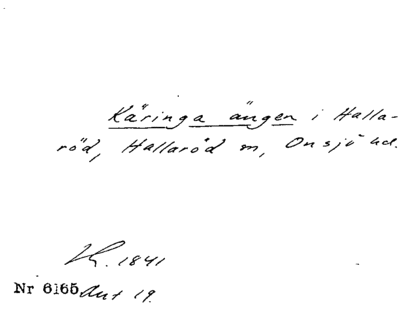 Käringa ängen i Halla-
röd, Hallaröd sn, Onsjö hd.
Lk. 1841
Nr 6165 Akt 19.